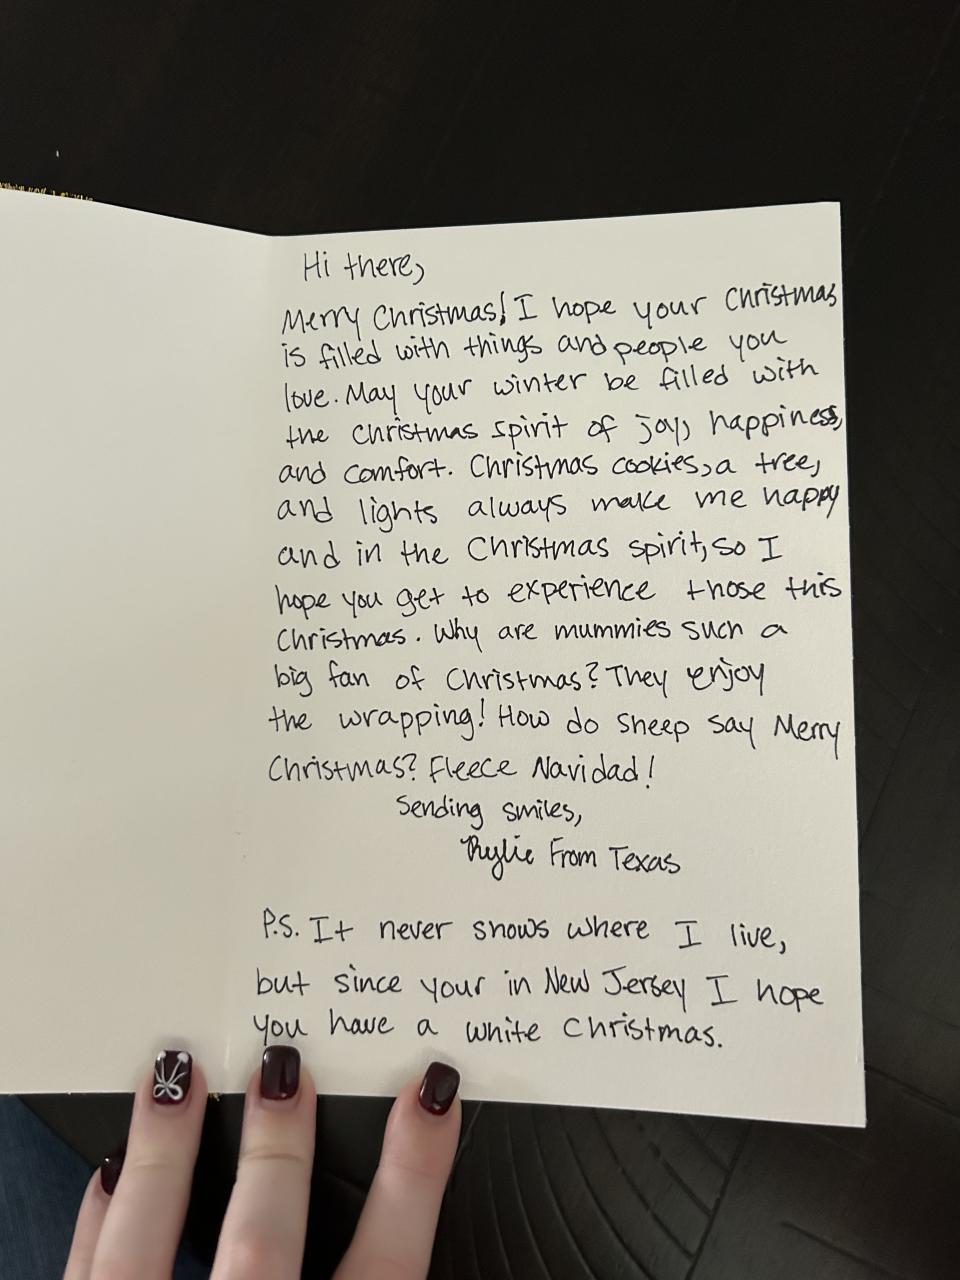 Hi there,
Merry Christmas! I hope your Christmas
is filled with things and people you
love. May your winter be filled with
the Christmas spirit of joy, happiness,
and comfort. Christmas cookies, a tree,
and lights always make me happy
and in the Christmas spirit, so I
hope you get to experience those this
Christmas. Why are mummies such a
big fan of Christmas? They enjoy
the wrapping! How do sheep say Merry
Christmas? Fleece Navidad!
Sending smiles,
Rylie From Texas
P.S. It never snows where I live,
but since your in New Jersey I hope
you have a white Christmas.